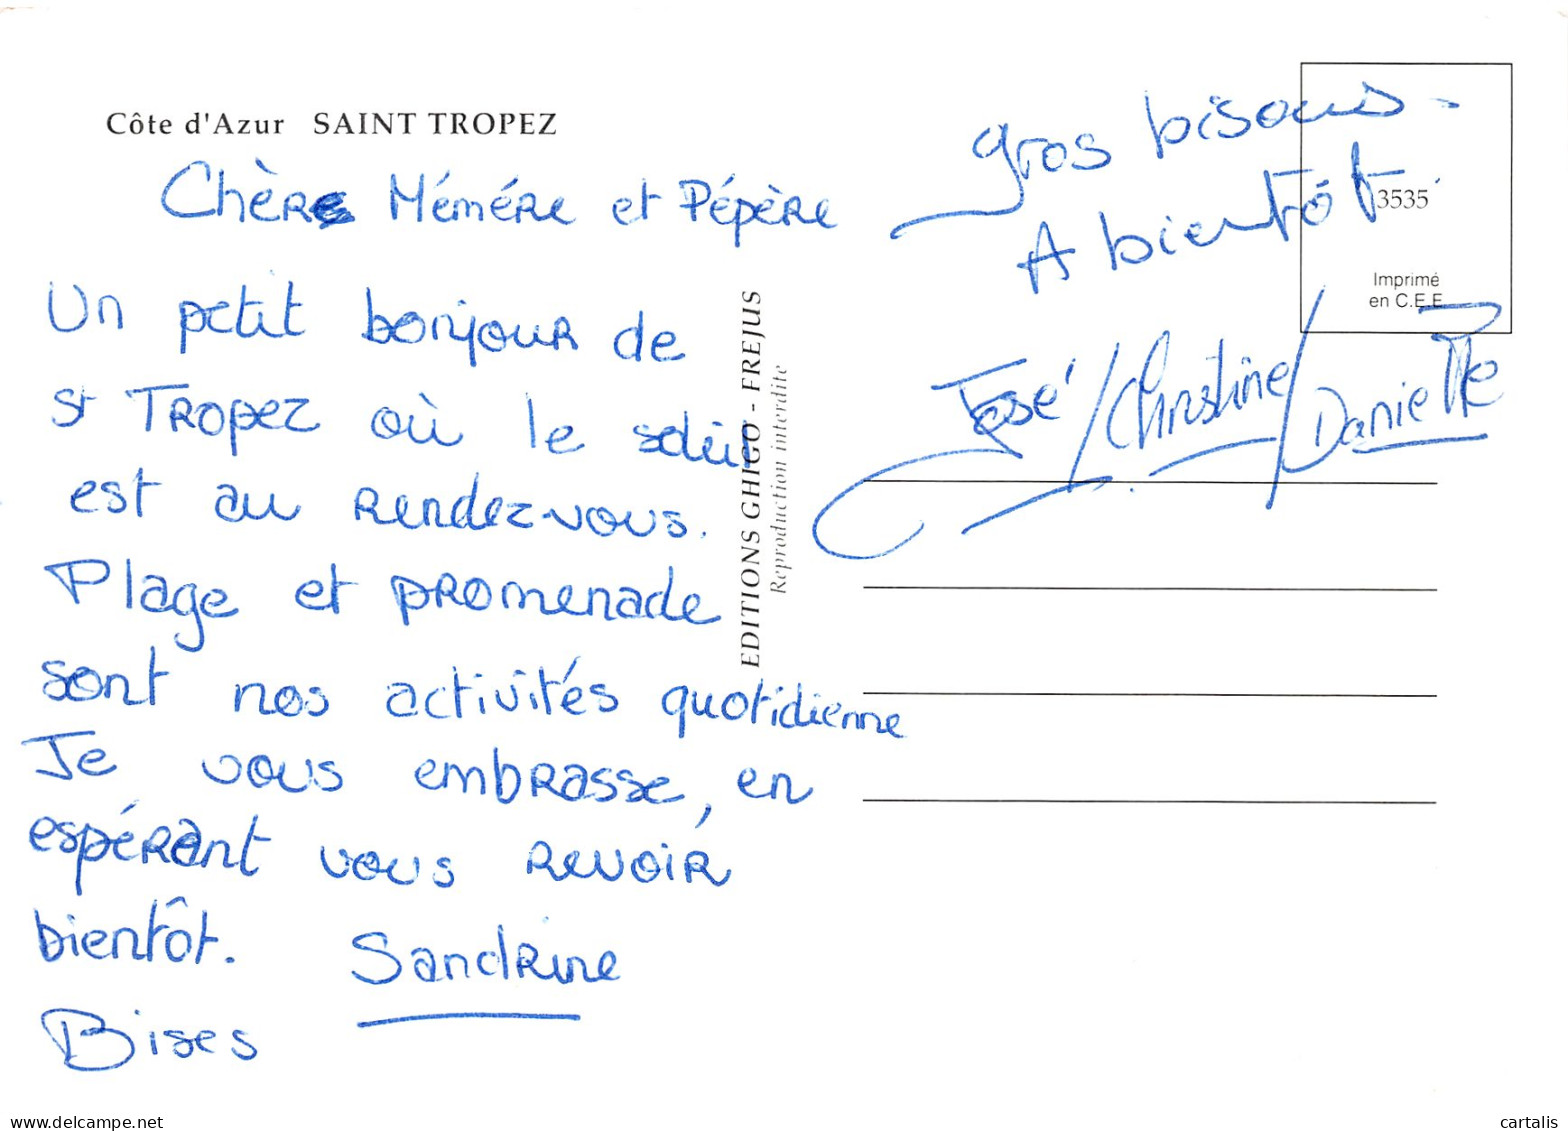 Côte d'Azur SAINT TROPEZ
Chère Mémére et Pépère
Un petit bonjour de
St Tropez où le soleil
est au rendez-vous.
Plage et promenade
sont nos activités quotidienne
Je vous embrasse, en
espérant vous revoir
bientôt. Sandrine
Bises
EDITIONS GHIGO - FREJUS
Reproduction interdite
gros bisous -
A bientôt
3535
Imprimé
en C.E.E.
José / Christine / Danielle
delcampe.net
cartalis